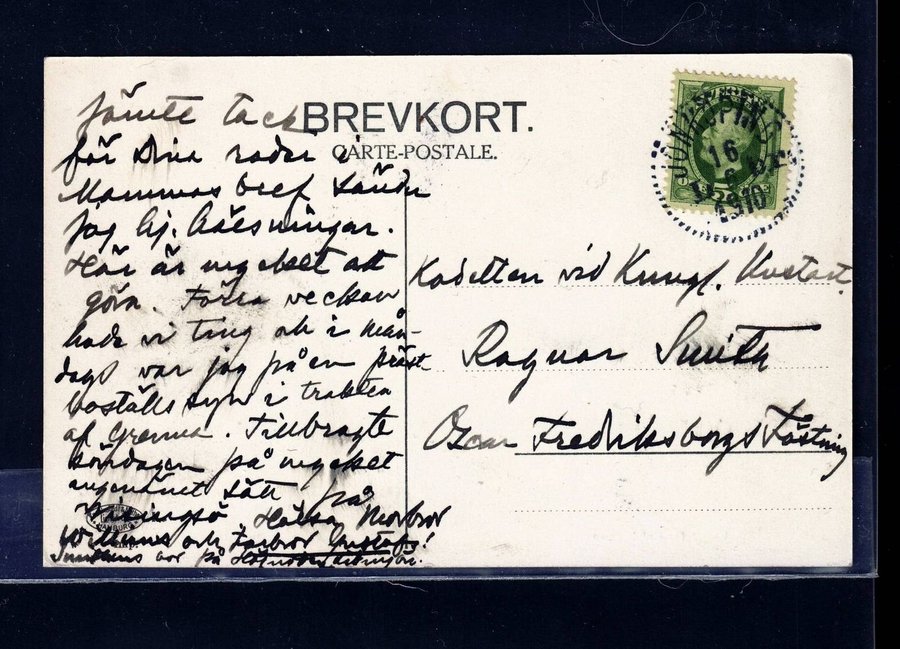 BREVKORT.
CARTE-POSTALE.
Jämte tack
för Dina rader i
Mammas bref sänder
jag hj. hälsningar.
Här är mycket att
göra. Förra veckan
hade vi ting och i mån-
dags var jag på en präst-
boställssyn i trakten
af Grenna. Tillbragte
söndagen på mycket
angenämt sätt på
Visingsö. Hälsa Morbror
och Farbror Gustaf!
bor på
JÖNKÖPING
16
6
1910
Kadetten vid Kungl. Kustart.
Ragnar Smith
Oscar Fredriksborgs Fästning
HAMBURG